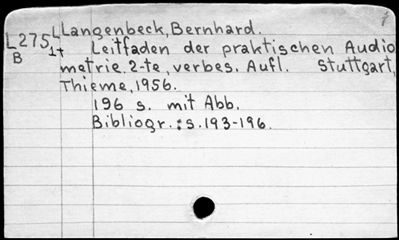 L275 Langenbeck, Bernhard.
B Leitfaden der praktischen Audio
metrie. 2-te, verbes. Aufl. Stuttgart,
Thieme, 1956.
196 s. mit Abb.
Bibliogr.: s. 193-196.